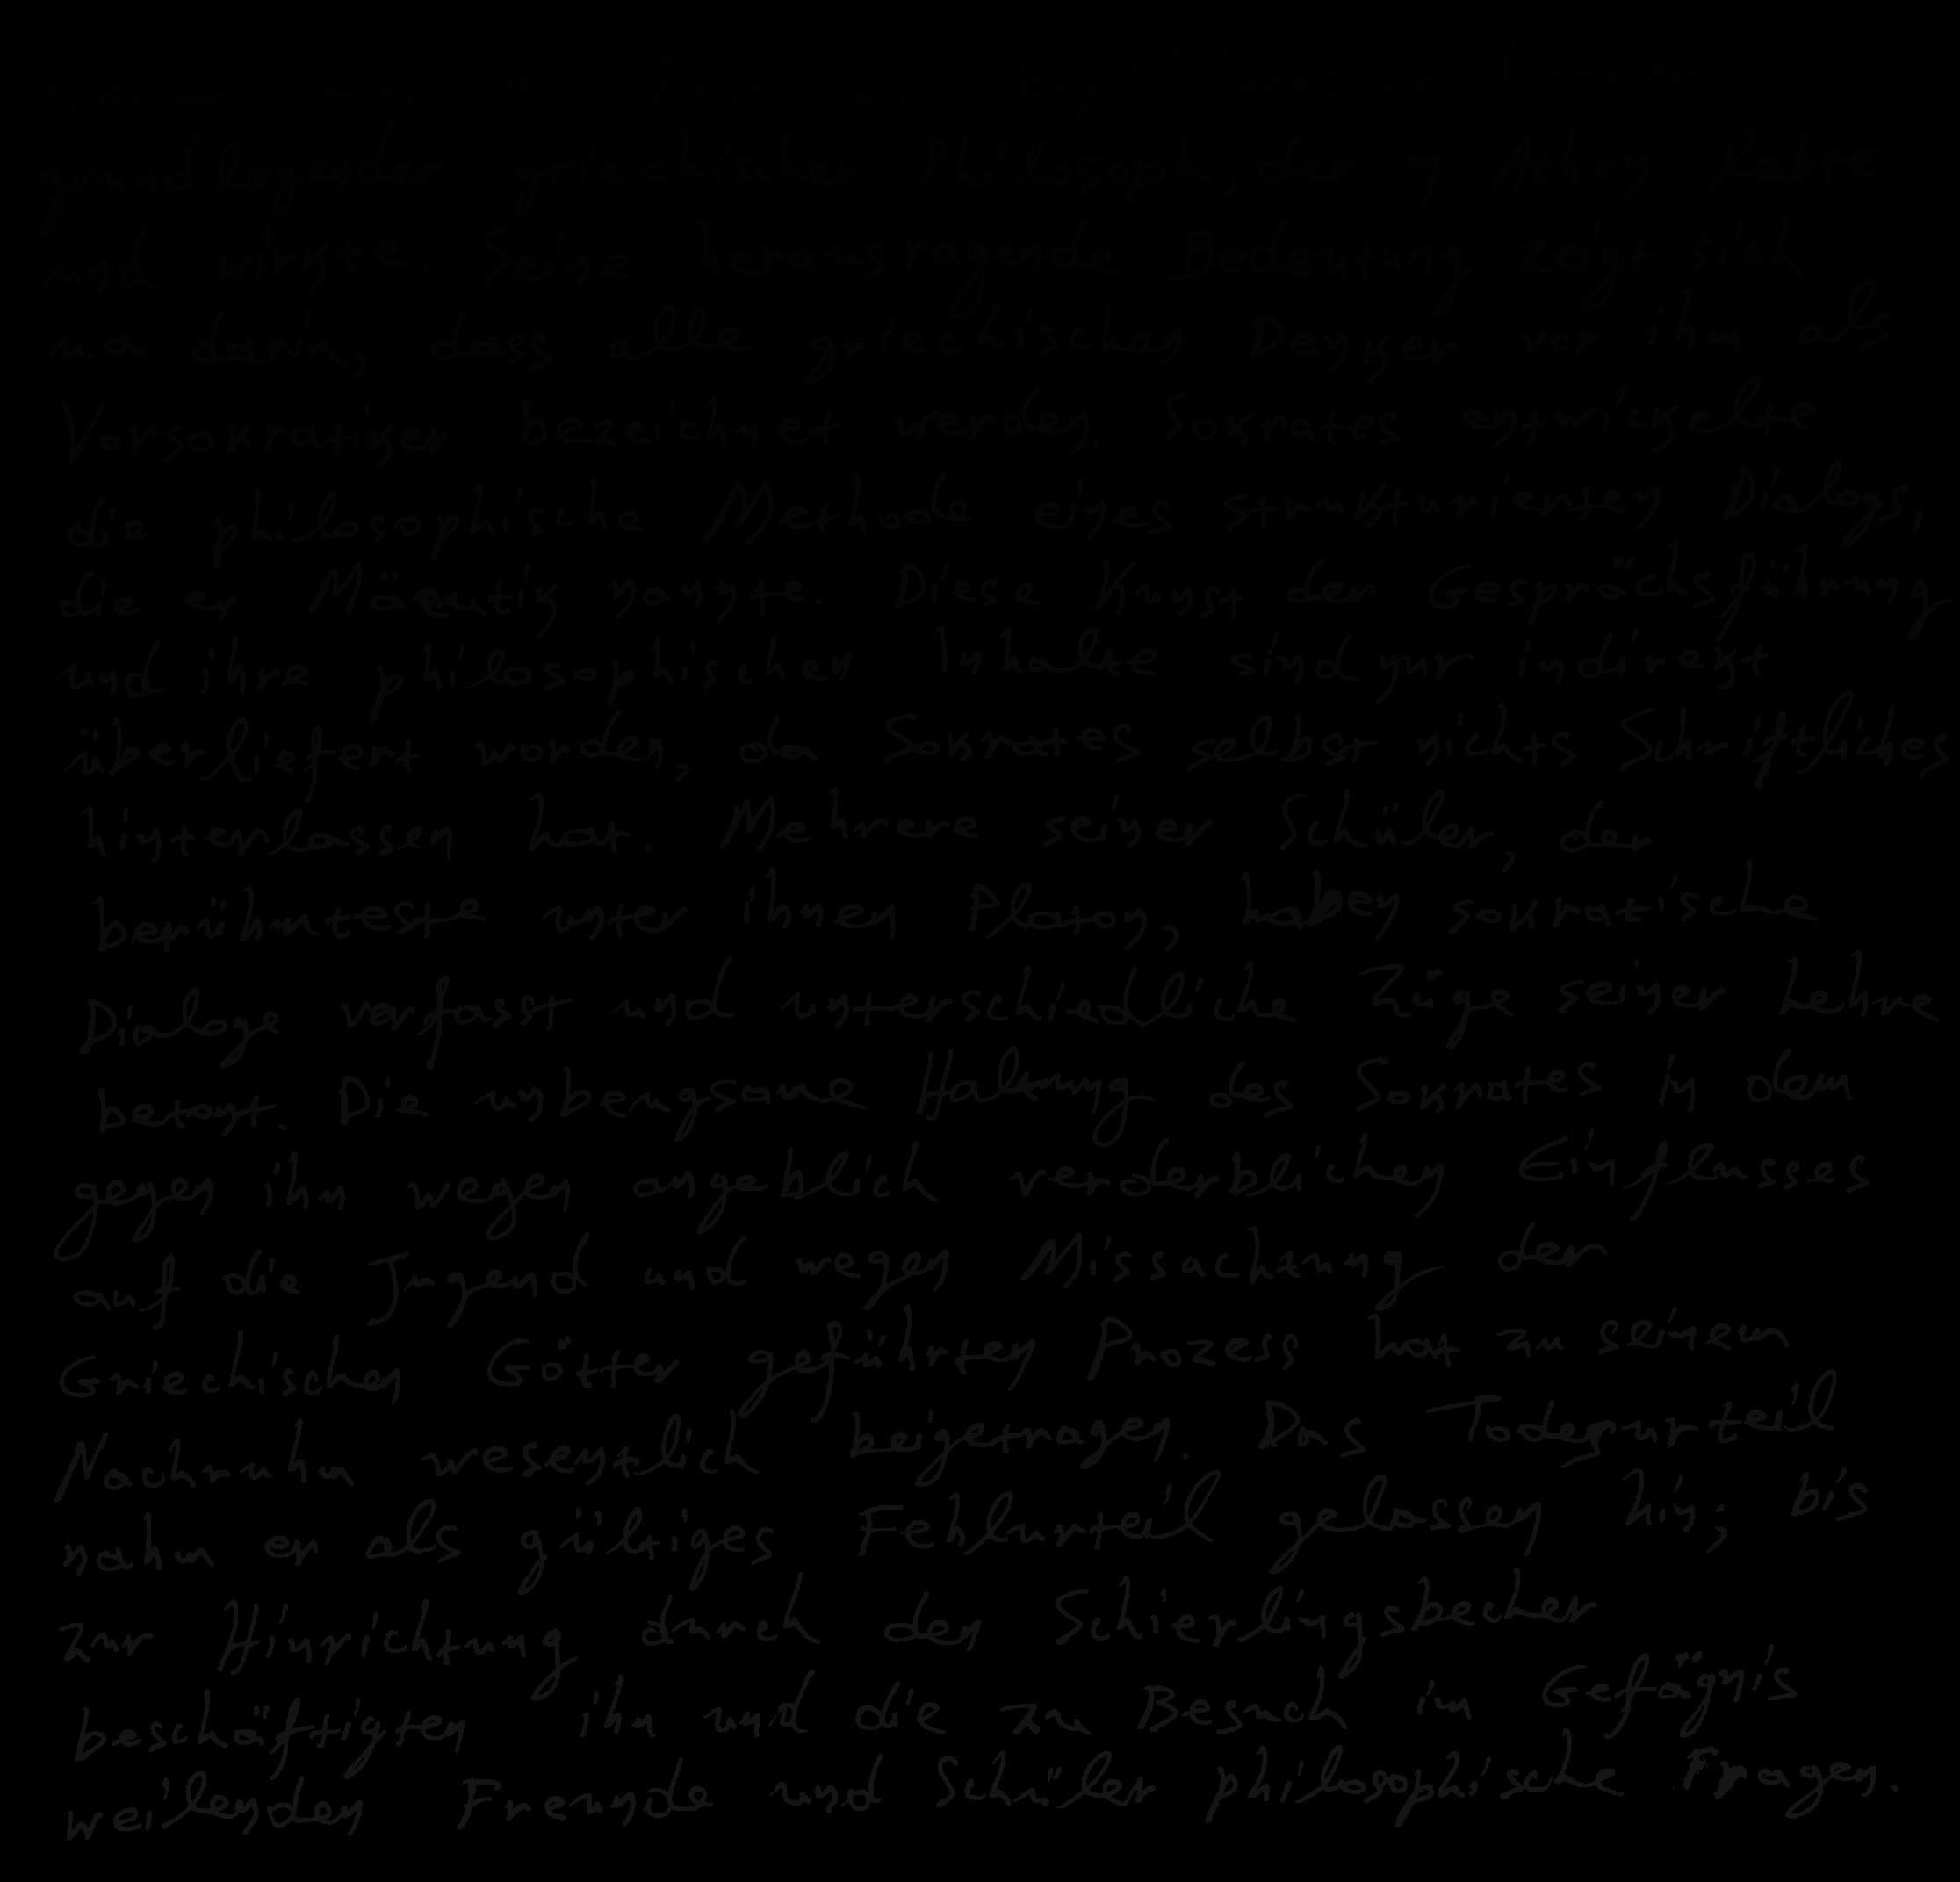 grundlegender griechischer Philosoph, der in Athen lebte
und wirkte. Seine herausragende Bedeutung zeigt sich
u.a. darin, dass alle griechischen Denker vor ihm als
Vorsokratiker bezeichnet werden. Sokrates entwickelte
die philosophische Methode eines strukturierten Dialogs,
die er Mäeutik nannte. Diese Kunst der Gesprächsführung
und ihre philosophischen Inhalte sind nur indirekt
überliefert worden, da Sokrates selbst nichts Schriftliches
hinterlassen hat. Mehrere seiner Schüler, der
berühmteste unter ihnen Platon, haben sokratische
Dialoge verfasst und unterschiedliche Züge seiner Lehre
betont. Die unbeugsame Haltung des Sokrates in dem
gegen ihn wegen angeblich verderblichen Einflusses
auf die Jugend und wegen Missachtung der
Griechischen Götter geführten Prozess hat zu seinem
Nachruhm wesentlich beigetragen. Das Todesurteil
nahm er als gültiges Fehlurteil gelassen hin; bis
zur Hinrichtung durch den Schierlingsbecher
beschäftigten ihn und die zu Besuch im Gefägnis
weilenden Freunde und Schüler philosophische Fragen.